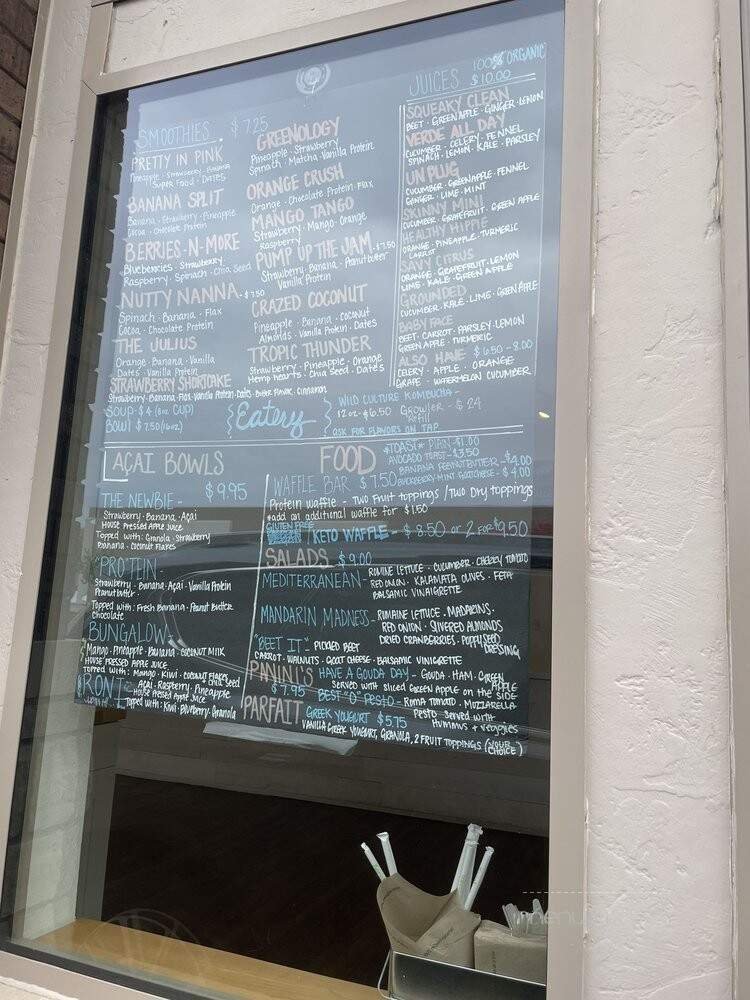 SMOOTHIES. $7.25
PRETTY IN PINK
Pineapple · Strawberry · Banana
Super Food · Dates
BANANA SPLIT
Banana · Strawberry · Pineapple
Cocoa · Chocolate Protein
BERRIES-N-MORE
Blueberries · Strawberry
Raspberry · Spinach · Chia Seed
NUTTY NANNA · $7.50
Spinach · Banana · Flax
Cocoa · Chocolate Protein
THE JULIUS
Orange · Banana · Vanilla
Dates · Vanilla Protein
STRAWBERRY SHORTCAKE
Strawberry · Banana · Flax · Vanilla Protein · Dates · Butter Flavor · Cinnamon
GREENOLOGY
Pineapple · Strawberry
Spinach · Matcha · Vanilla Protein
ORANGE CRUSH
Orange · Chocolate Protein · Flax
MANGO TANGO
Strawberry · Mango · Orange
Raspberry
PUMP UP THE JAM · $7.50
Strawberry · Banana · Peanutbutter
Vanilla Protein
CRAZED COCONUT
Pineapple · Banana · Coconut
Almonds · Vanilla Protein · Dates
TROPIC THUNDER
Strawberry · Pineapple · Orange
Hemp hearts · Chia Seed · Dates
JUICES 100% ORGANIC
$10.00
SQUEAKY CLEAN
BEET · GREEN APPLE · GINGER · LEMON
VERDE ALL DAY
CUCUMBER · CELERY · FENNEL
SPINACH · LEMON · KALE · PARSLEY
UNPLUG
CUCUMBER · GREENAPPLE · FENNEL
GINGER · LIME · MINT
SKINNY MINI
CUCUMBER · GRAPEFRUIT · GREEN APPLE
HEALTHY HIPPIE
ORANGE · PINEAPPLE · TURMERIC
CARROT
SAVY CITRUS
ORANGE · GRAPEFRUIT · LEMON
LIME · KALE · GREEN APPLE
GROUNDED
CUCUMBER · KALE · LIME · GREEN APPLE
BABY FACE
BEET · CARROT · PARSLEY · LEMON
GREEN APPLE · TURMERIC
ALSO HAVE $6.50 - 8.00
CELERY · APPLE · ORANGE
GRAPE · WATERMELON CUCUMBER
SOUP · $4 (8oz CUP)
BOWL $7.50 (16oz)
Eatery
WILD CULTURE KOMBUCHA -
12oz - $6.50 Growler - $24
Refill
ASK FOR FLAVORS ON TAP
AÇAI BOWLS
$9.95
THE NEWBIE -
Strawberry · Banana · Açai
House Pressed Apple Juice
Topped with: Granola · Strawberry
Banana · Coconut Flakes
PROTEIN -
Strawberry · Banana · Açai · Vanilla Protein
Peanut butter ·
Topped with: Fresh Banana · Peanut Butter
Chocolate
BUNGALOW -
Mango · Pineapple · Banana · COCONUT MILK
HOUSE PRESSED APPLE JUICE
TOPPED WITH: Mango · Kiwi · COCONUT FLAKES
Chia Seed
RONI - Açai · Raspberry · Pineapple
House Pressed Apple Juice
Topped with: Kiwi · Blueberry · Granola
FOOD
*TOAST* PLAIN - $1.00
AVOCADO TOAST - $3.50
BANANA PEANUTBUTTER - $4.00
BLACKBERRY · MINT · GOATCHEESE - $4.00
WAFFLE BAR $7.50
Protein waffle - Two Fruit toppings / Two Dry toppings
*add an additional waffle for $1.50
GLUTEN FREE
KETO WAFFLE - $8.50 or 2 FOR $9.50
SALADS $9.00
MEDITERRANEAN - ROMINE LETTUCE · CUCUMBER · CHERRY TOMATO
RED ONION · KALAMATA OLIVES · FETA
BALSAMIC VINAIGRETTE
MANDARIN MADNESS - ROMAINE LETTUCE · MADARINS ·
RED ONION · SLIVERED ALMONDS
DRIED CRANBERRIES · POPPYSEED
DRESSING
"BEET IT" PICKLED BEET
CARROT · WALNUTS · GOAT CHEESE · BALSAMIC VINIGRETTE
PININI'S HAVE A GOUDA DAY - GOUDA · HAM · GREEN
APPLE
SERVED WITH SLICED GREEN APPLE ON THE SIDE
$7.95 BEST "O" PESTO - ROMA TOMATO, MOZZARELLA
PESTO SERVED WITH
HUMMUS + VEGGIES
PARFAIT GREEK YOUGURT $5.75
VANILLA GREEK YOUGURT, GRANOLA, 2 FRUIT TOPPINGS (YOUR CHOICE)